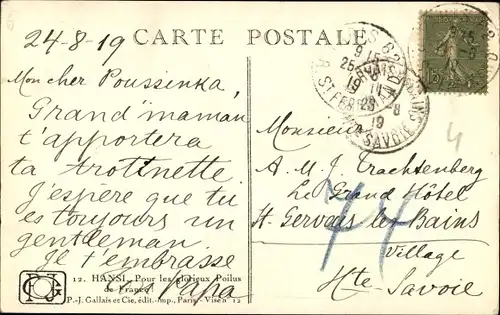 24-8-19
CARTE POSTALE
Mon cher Poussenka,
Grand'maman
t'apportera
ta trottinette
J'espère que tu
es toujours un
gentleman.
Je t'embrasse
Papa
12. HANSI. Pour les glorieux Poilus
de France!
P.-J. Gallais et Cie, édit.-imp., Paris - Visé n° 12
Monsieur
A. M. J. Trachtenberg
Le Grand Hôtel
St. Gervais les Bains
Village
Hte Savoie
74
4
15